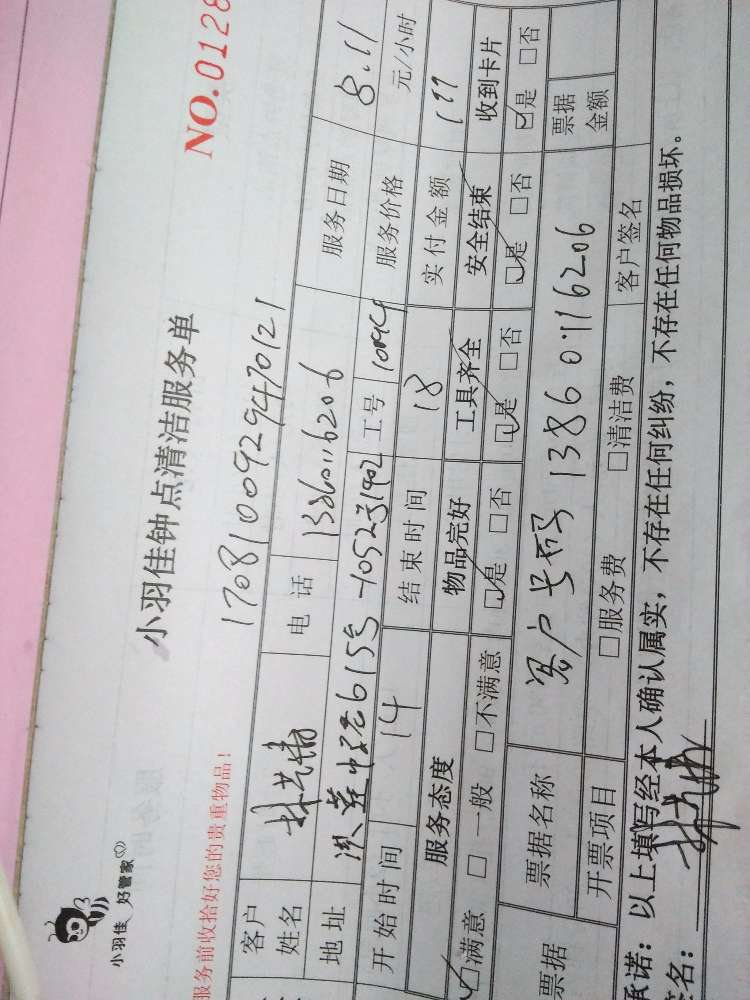 小羽佳 好管家
NO.0128
小羽佳钟点清洁服务单
服务前收拾好您的贵重物品！
1708100929470121
客户姓名 电话 13860116206 服务日期 8.11
地址 615号 工号 服务价格 元/小时
开始时间 14 结束时间 18 实付金额
服务态度 物品完好 工具齐全 安全结束 收到卡片
☑满意 □一般 □不满意 ☑是 □否 ☑是 □否 ☑是 □否 ☑是 □否
票据 票据名称 客户号码 13860116206 票据金额
开票项目 □服务费 □清洁费 客户签名
承诺：以上填写经本人确认属实，不存在任何纠纷，不存在任何物品损坏。
签名：